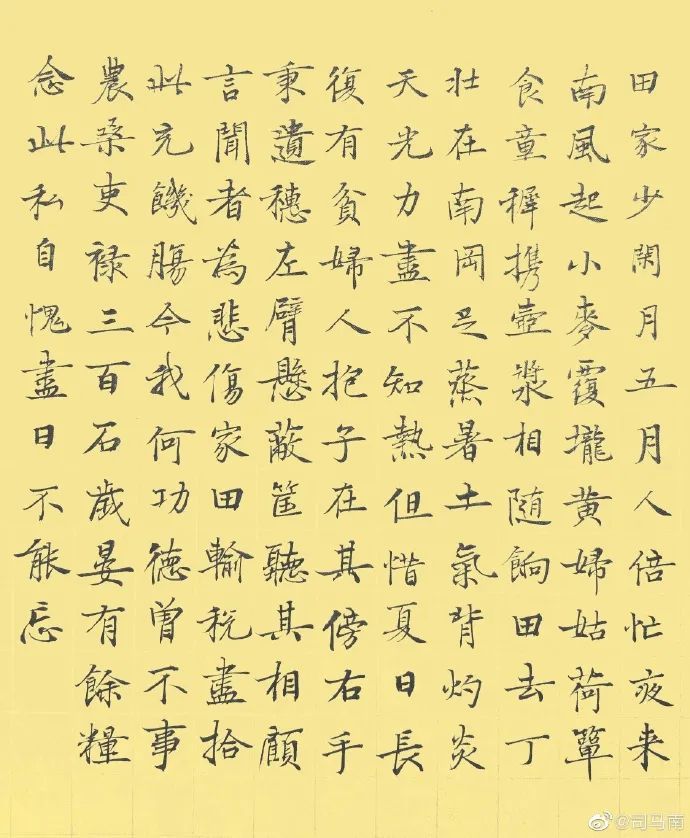 田家少閑月五月人倍忙夜来
南風起小麥覆壠黃婦姑荷簞
食童穉攜壺漿相随餉田去丁
壮在南岡足蒸暑土氣背灼炎
天光力盡不知熱但惜夏日長
復有貧婦人抱子在其傍右手
秉遺穗左臂懸蔽筐聽其相顧
言聞者為悲傷家田輸稅盡拾
此充饑腸今我何功德曾不事
農桑吏禄三百石歲晏有餘糧
念此私自愧盡日不能忘
@司马南